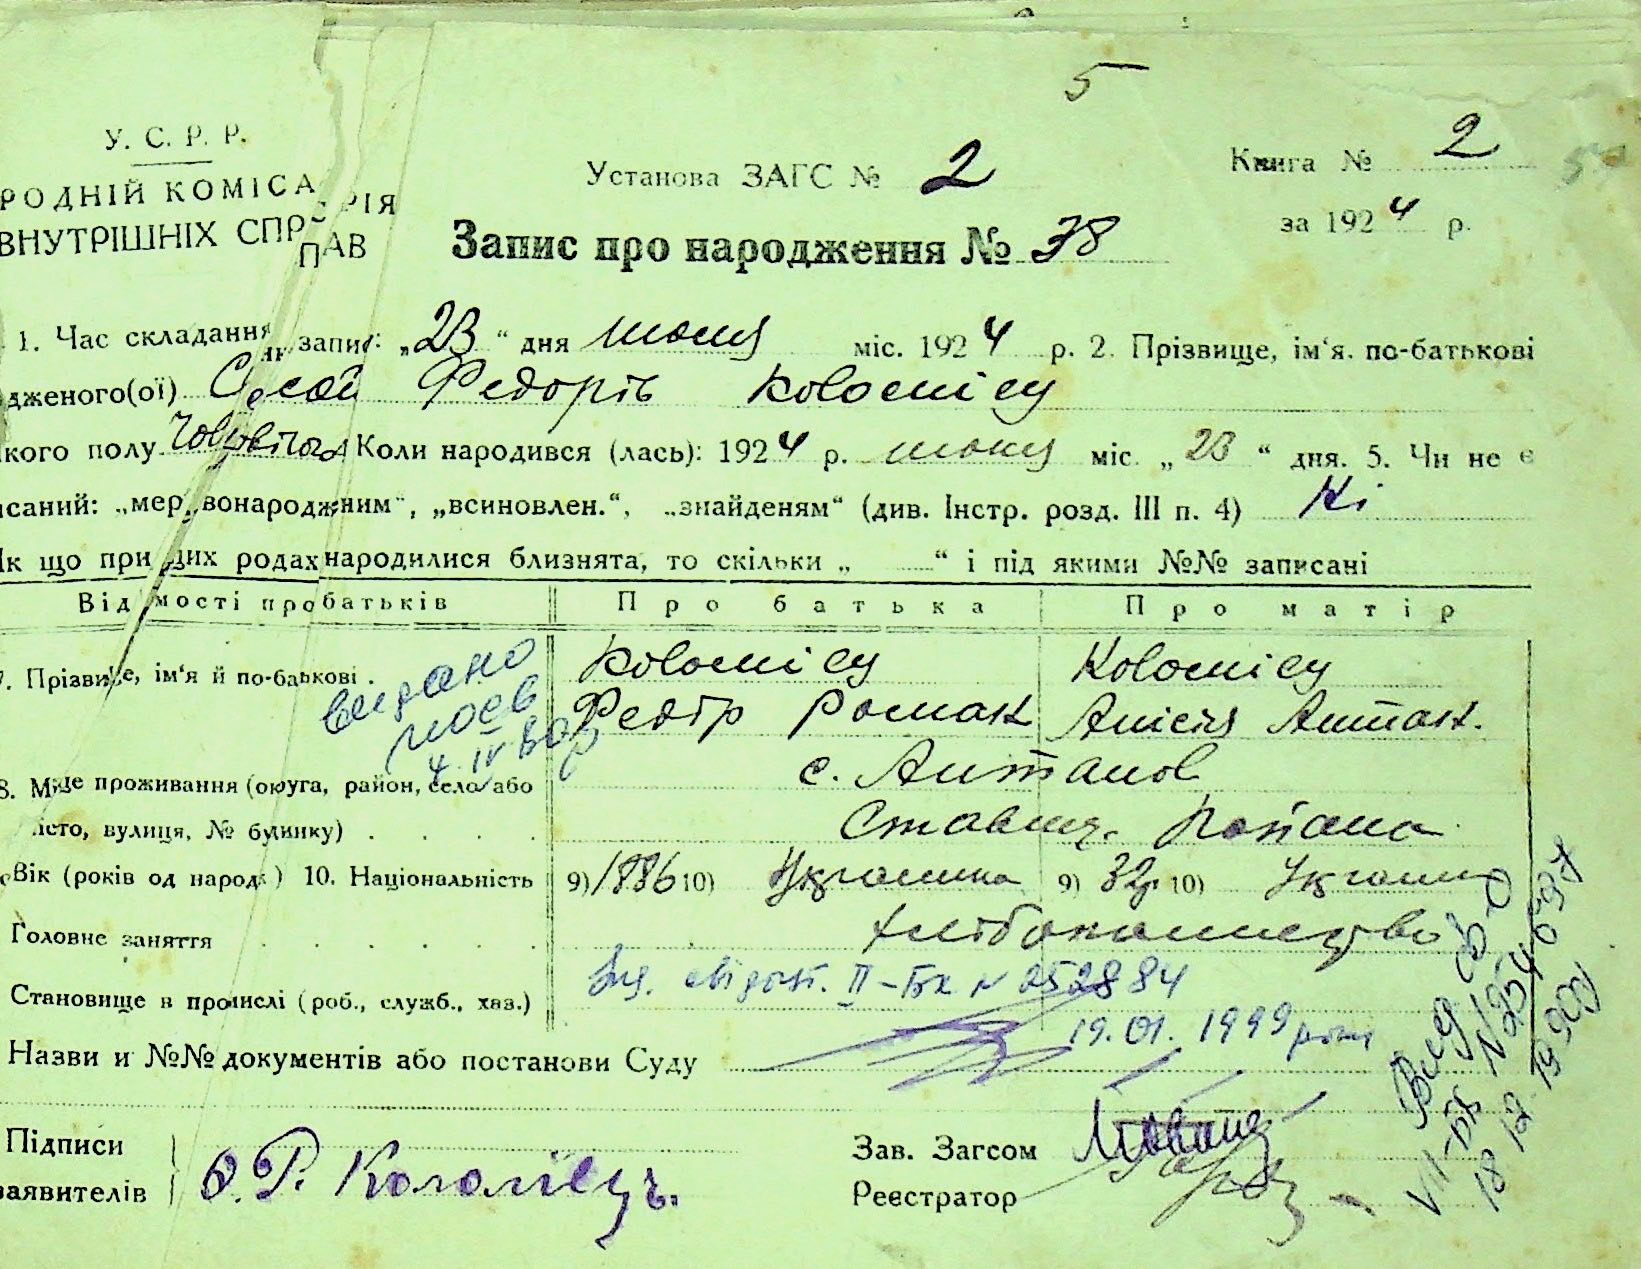 5
У. С. Р. Р.
РОДНІЙ КОМІСАРІЯ
ВНУТРІШНІХ СПРАВ
Установа ЗАГС № 2
Книга № 2
за 1924 р.
Запис про народження № 38
1. Час складання запис: „23“ дня июня міс. 1924 р. 2. Прізвище, ім‘я, по-батькові
дженого(ої) Федорів Коломієц
кого полу Чоловічого Коли народився (лась): 1924 р. июня міс. „23“ дня. 5. Чи не є
исаний: „мертвонародженим“, „всиновлен.“, „знайденям“ (див. Інстр. розд. III п. 4) Ні
Як що при цих родах народилися близнята, то скільки „ “ і під якими №№ записані
Відомості про батьків Про батька Про матір
7. Прізвище, ім‘я й по-батькові . Коломієц Коломієц
Федір Роман Анісія Антон.
видано
4. IV
8. Місце проживання (округа, район, село або с. Антонов
місто, вулиця, № будинку) . . . . Ставищ. Района
Вік (років од народ.) 10. Національність 9) 1886 10) Украинка 9) 32р 10) Украин
Головне заняття . . . . . . хлібопашество
Становище в промислі (роб., служб., хаз.)
Вид. свідоцт. II-БК № 252884
19.01.1999 року
Назви и №№ документів або постанови Суду
Підписи
заявителів Ф. Р. Коломіецъ.
Зав. Загсом
Реєстратор